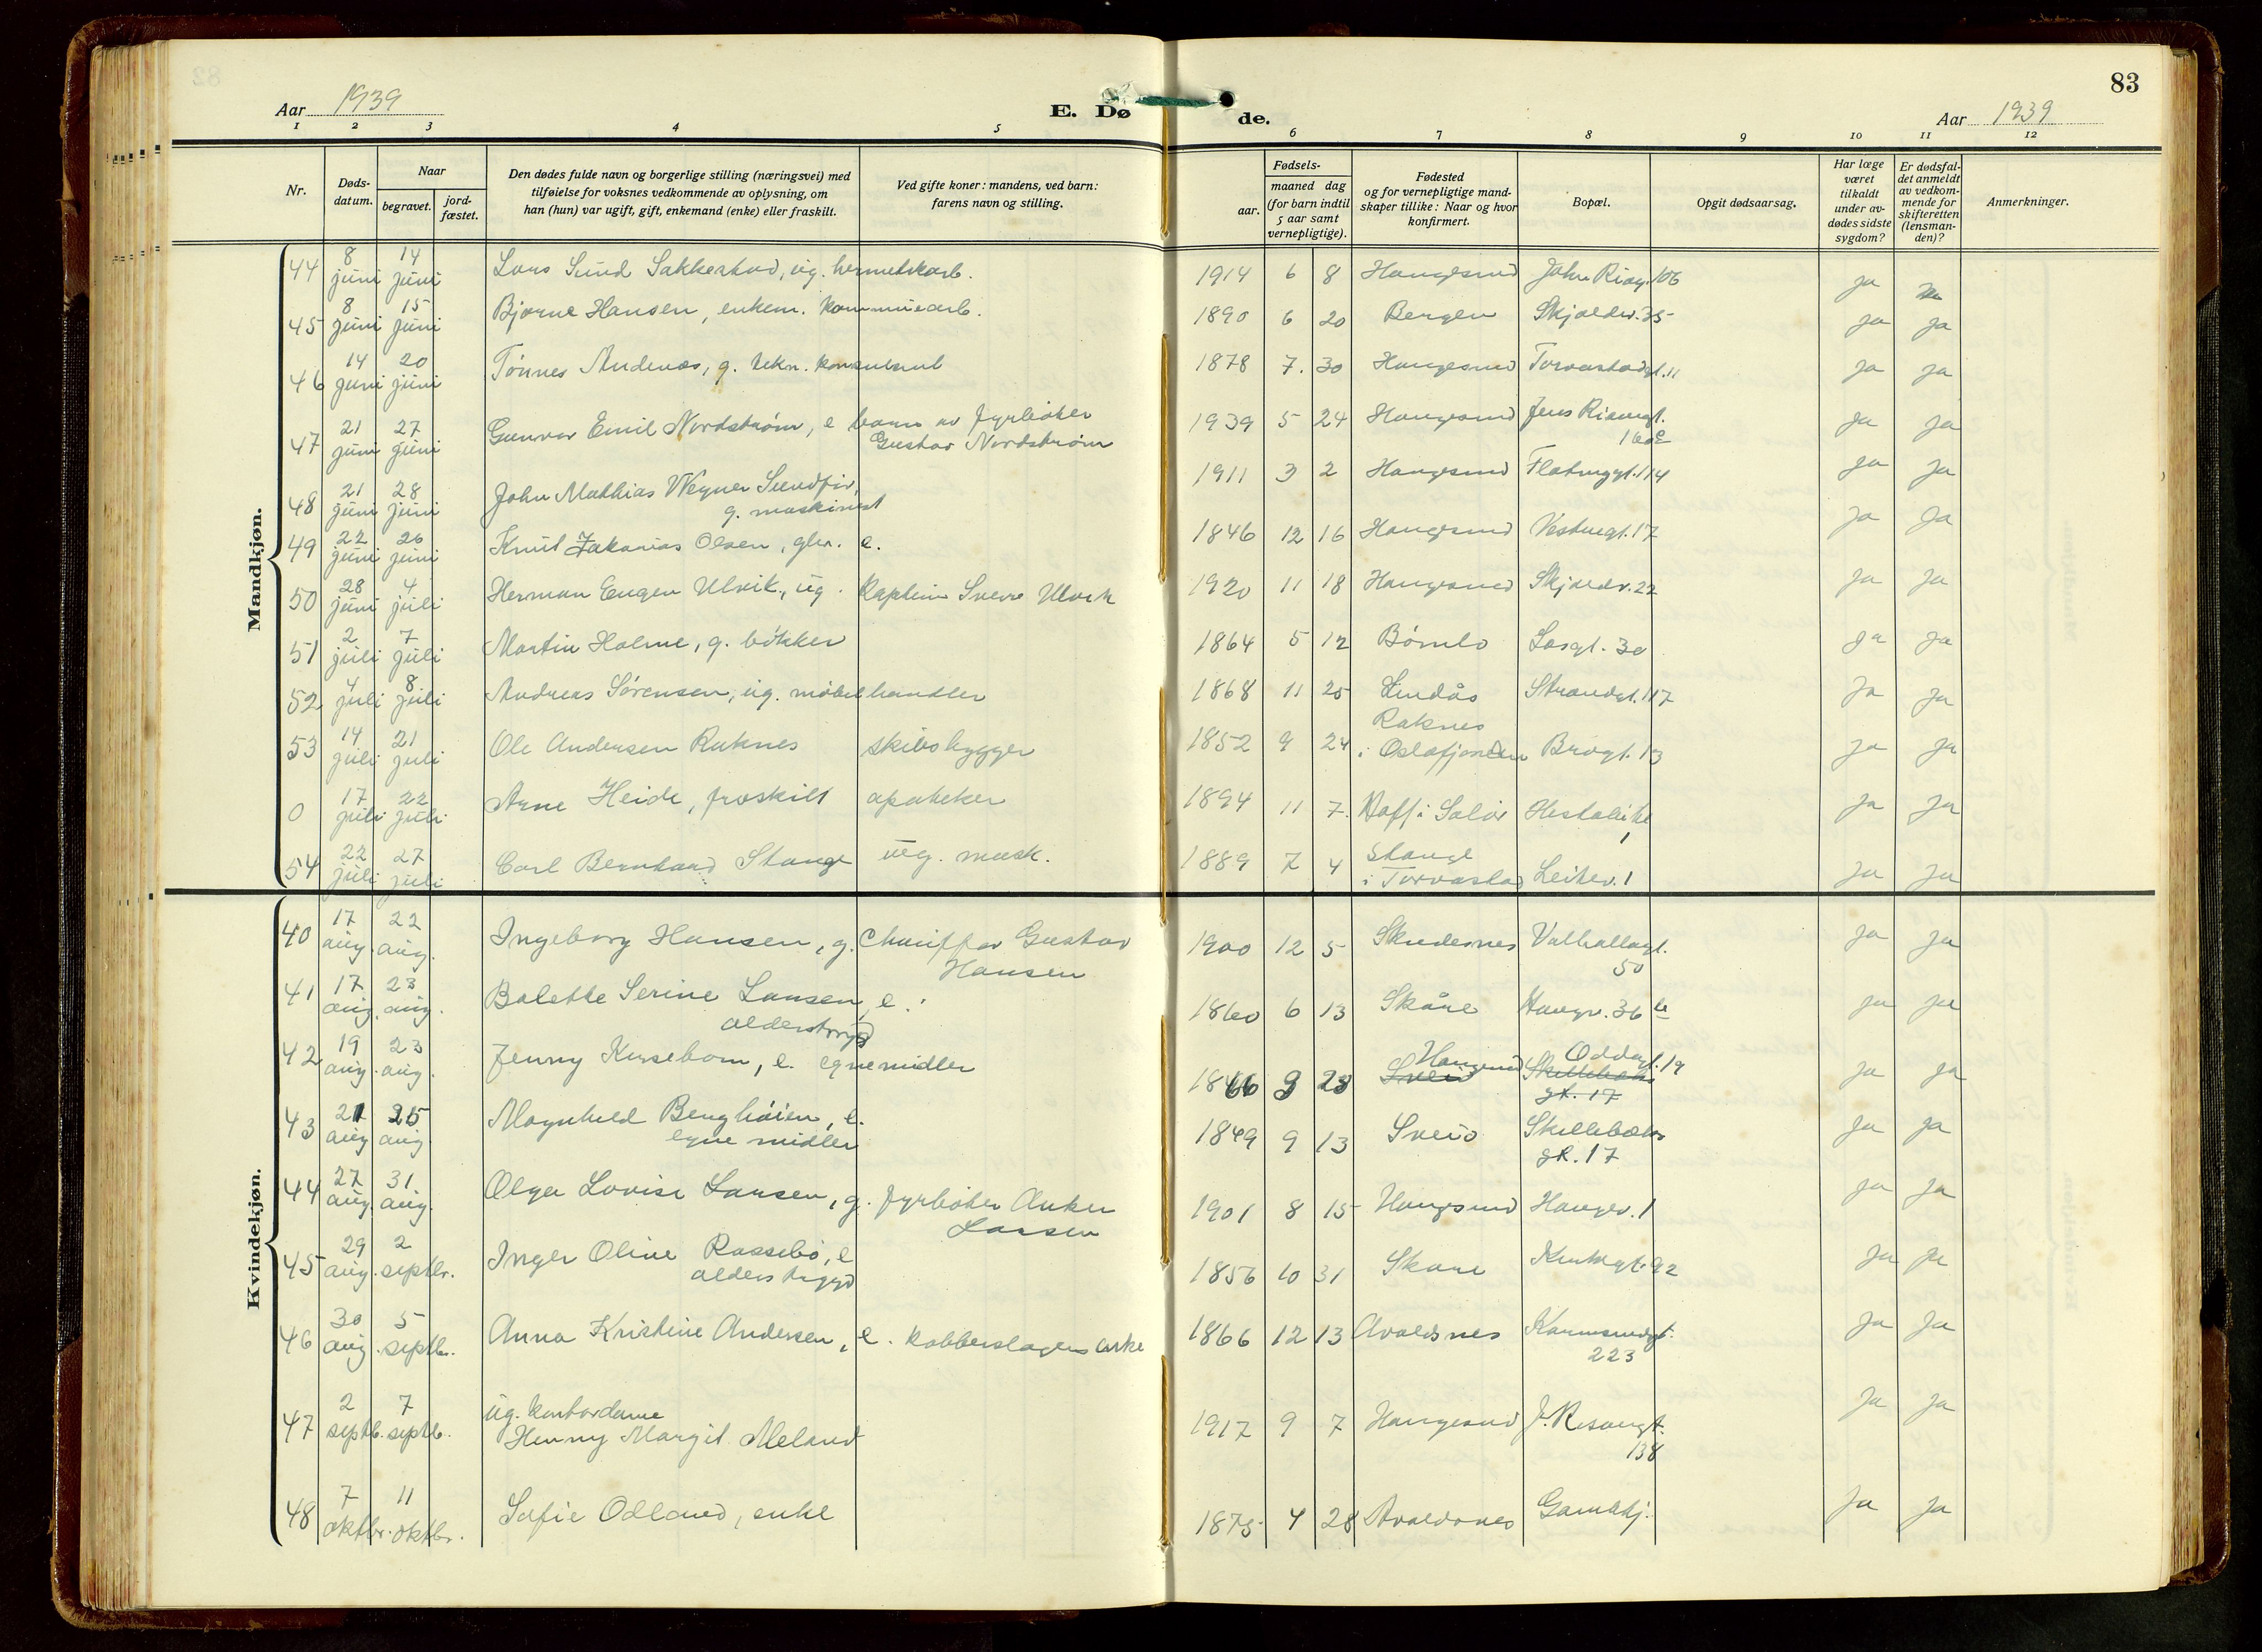 83
Aar 1939
E. Døde.
Aar 1939
1 2 3 4 5 6 7 8 9 10 11 12
Nr.
Døds-datum.
Naar
begravet.
jord-fæstet.
Den dødes fulde navn og borgerlige stilling (næringsvei) med
tilføielse for voksnes vedkommende av oplysning, om
han (hun) var ugift, gift, enkemand (enke) eller fraskilt.
Ved gifte koner: mandens, ved barn:
farens navn og stilling.
Fødsels-
aar.
maaned dag
(for barn indtil
5 aar samt
vernepligtige).
Fødested
og for vernepligtige mand-
skaper tillike: Naar og hvor
konfirmert.
Bopæl.
Opgit dødsaarsag.
Har læge
været
tilkaldt
under av-
dødes sidste
sygdom?
Er dødsfal-
det anmeldt
av vedkom-
mende for
skifteretten
(lensman-
den)?
Anmerkninger.
Mandkjøn.
44 8 juni 14 juni Lars Sund Sakkestad, ug. hermetikarb. 1914 6 8 Haugesund 106 ja
45 8 juni 15 juni Bjarne Hansen, enkem. kommunearb. 1890 6 20 Bergen Skjoldv. 35 ja ja
46 14 juni 20 juni Tønnes Andenæs, g. tekn. konsulent 1878 7. 30 Haugesund Torvastadgt. 11 ja ja
47 21 juni 27 juni Gunvar Emil Nordstrøm, e barn av fyrbøter
Gustav Nordstrøm 1939 5 24 Haugesund Jens Risøengt. ja ja
48 21 juni 28 juni John Mathias Wegner Sundfør,
g. maskinist 1911 3 2 Haugesund 114 ja ja
49 22 juni 26 juni Knut Zakarias Olsen, e. 1846 12 16 Haugesund 17 ja ja
50 28 juni 4 juli Herman Eugen Ulvik, ug. kaptein Sverre Ulvik 1920 11 18 Haugesund Skjoldv. 22 ja ja
51 2 juli 7 juli Martin Holme, g. bøkker 1864 5 12 Bømlo 30 ja ja
52 4 juli 8 juli Andreas Sørensen, ug. møbelhandler 1868 11 25 Lindås Strandgt. 117 ja ja
53 14 juli 21 juli Ole Andersen Raknes skibsbygger 1852 9 24 Raknes
i Oslofjorden Brogt. 13 ja ja
0 17 juli 22 juli Arne Heide, fraskilt apoteker 1894 11 7. Hoff i Solør ja ja
54 22 juli 27 juli Carl Bernhard Stange ug. mask. 1889 7 4 Stange
i Torvastad 1 ja ja
Kvindekjøn.
40 17 aug. 22 aug. Ingeborg Hansen, g. Chauffør Gustav
Hansen 1900 12 5 Skudesnes Valhallagt.
50 ja ja
41 17 aug. 23 aug. Bolette Serine Larsen, e.
alderstrygd 1860 6 13 Skåre Haugev. 36 ja ja
42 19 aug. 23 aug. Jenny Kersebom, e. egne midler 1846 9 23 Haugesund Sveio Oddagt. 19
gt. 17 ja ja
43 21 aug 25 aug. Magnhild Berghøien, e.
egne midler 1849 9 13 Sveio
gt. 17 ja ja
44 27 aug. 31 aug. Olga Lovise Larsen, g. fyrbøter Anker
Larsen 1901 8 15 Haugesund Haugev. 1 ja ja
45 29 aug. 2 septbr. Inger Oline Rossebø, e
alderstrygd 1856 10 31 Skåre 92 ja ja
46 30 aug. 5 septbr. Anna Kristine Andersen, e. kobberslagerenke 1866 12 13 Avaldsnes Karmsundgt.
223 ja ja
47 2 septb. 7 septb. ug. kontordame
Henny Margit Meland 1917 9 7 Haugesund J. Risøengt.
138 ja ja
48 7 oktbr. 11 oktbr. Sofie Odland, enke 1875 4 28 Avaldsnes ja ja